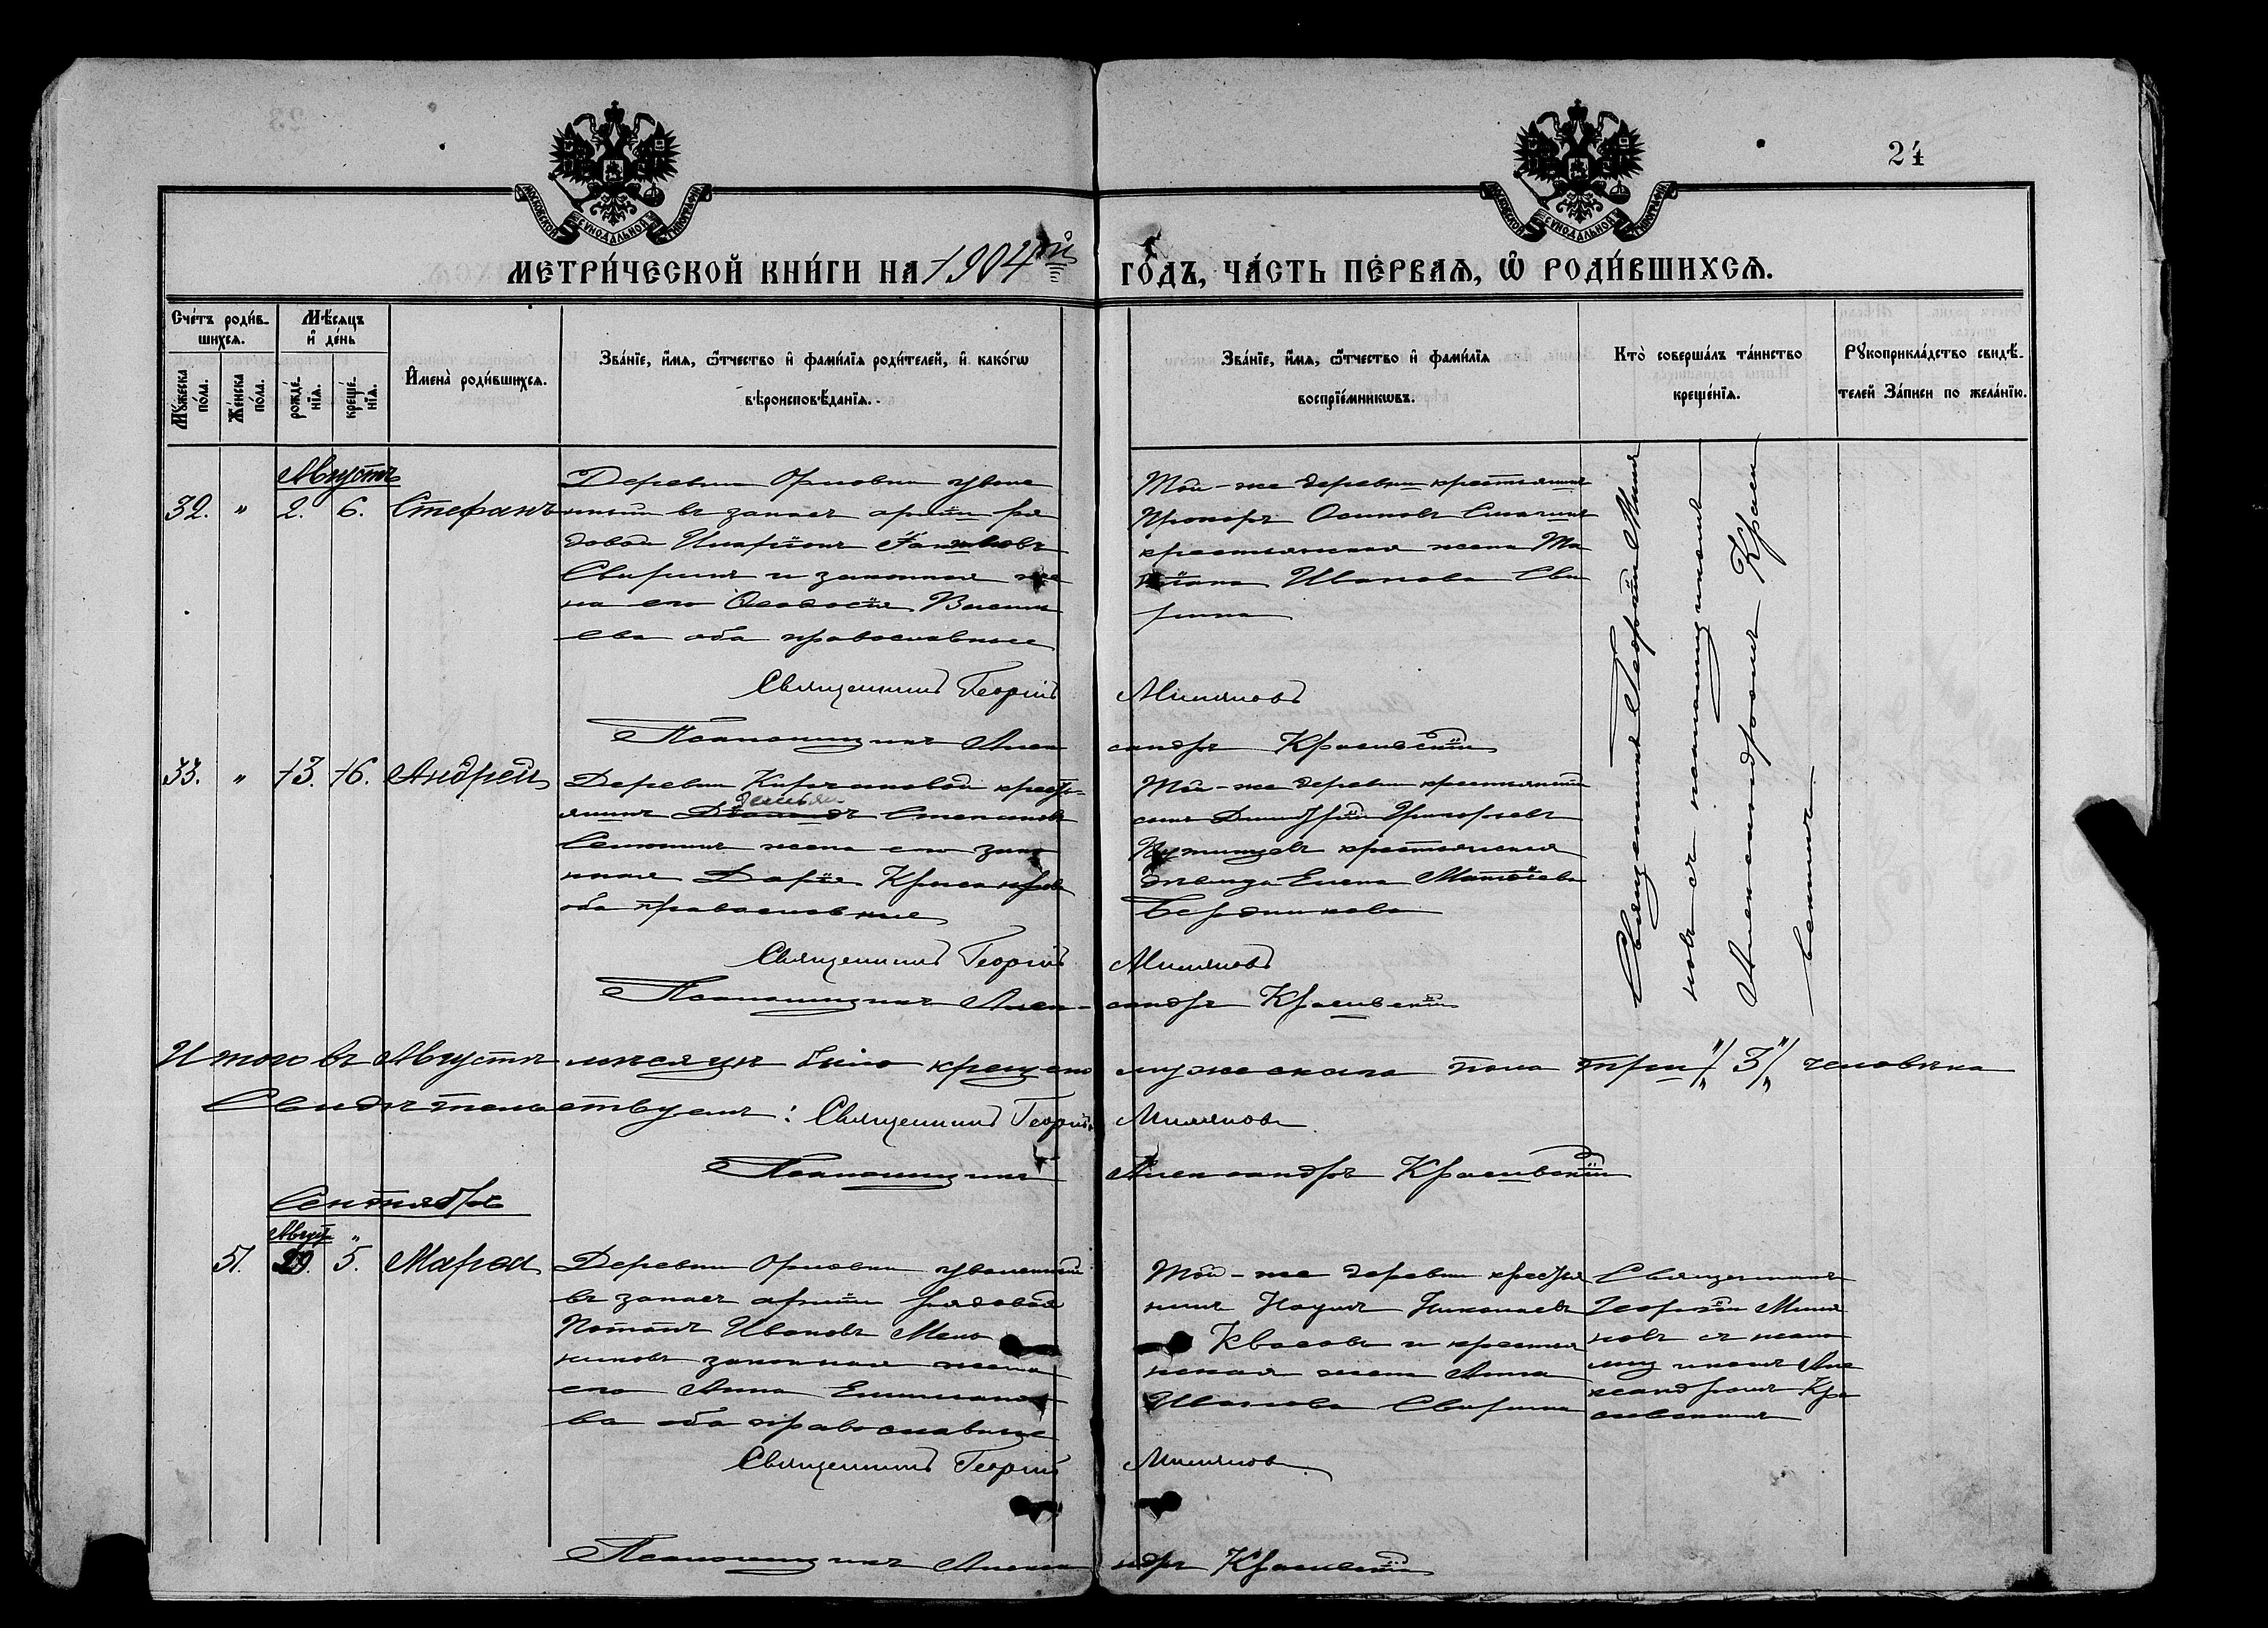 24
МОСКОВСКОЙ СѴНОДАЛЬНОЙ ТИПОГРАФІИ
МОСКОВСКОЙ СѴНОДАЛЬНОЙ ТИПОГРАФІИ
МЕТРИ́ЧЕСКОЙ КНИ́ГИ НА 1904ый ГО́ДЪ, ЧА́СТЬ ПЕ́РВАѦ, Ѡ҆ РОДИ́ВШИХСѦ.
Сче́тъ роди́в-
шихсѧ.
Мꙋ́жеска по́ла.
Же́нска по́ла.
Мѣ́сѧцъ
и҆ де́нь
рожде́-
нїѧ.
креще́-
нїѧ.
И҆мена̀ роди́вшихсѧ.
Зва́нїе, и҆́мѧ, ѻ҆́тчество и҆ фами́лїѧ роди́телей, и҆ како́гѡ
вѣроисповѣ́данїѧ.
Зва́нїе, и҆́мѧ, ѻ҆́тчество и҆ фами́лїѧ
воспрїе́мникѡвъ.
Кто̀ соверша́лъ та́инство
креще́нїѧ.
Рꙋкоприкла́дство свидѣ́-
телей За́писи по жела́нїю.
Августъ
32. " 2. 6. Стефанъ
Деревни Орловки уволе
нный въ запасъ арміи ря
довой Иларіонъ
Свиринъ и законная же
на его Ѳеодосія
ева оба православные
Той-же деревни крестьянинъ
Прохоръ Осиповъ
крестьянская жена Та
тіана Иванова Сви
рина
Священникъ Георгій Миляновъ
Псаломщикъ Александръ Красивскій
Священникъ Георгій Миля
новъ съ псаломщикомъ
Александромъ Краси
вскимъ
33. " 13. 16. Андрей
Деревни Кирсановой кресть-
янинъ Демьян Степановъ
Селюнинъ жена его зако
нная Дарія
оба православные
Той-же деревни крестьянскій
сынъ Димитрій Григорьевъ
крестьянская
дѣвица Елена Матѳіева
Бердникова
Священникъ Георгій Миляновъ
Псаломщикъ Александръ Красивскій
Итого въ Августѣ мѣсяцѣ было крещено мужескаго пола три /3/ человѣка
Свидѣтельствуемъ: Священникъ Георгій Миляновъ
Псаломщикъ Александръ Красивскій
Сентябрь
Август.
51. 29. 5. Марѳа
Деревни Орловки уволенный
въ запасъ арміи рядовой
Потапъ Ивановъ Мель
никовъ законная жена
его Анна Емельяно
ва оба православные
Той-же деревни крестья
нинъ Наумъ Николаевъ
Квасовъ и крестья
нская жена Анна
Иванова Свирина
Священникъ
Георгій Миля
новъ съ псало
мщикомъ Але
ксандромъ Кра
сивскимъ
Священникъ Георгій Миляновъ
Псаломщикъ Александръ Красивскій